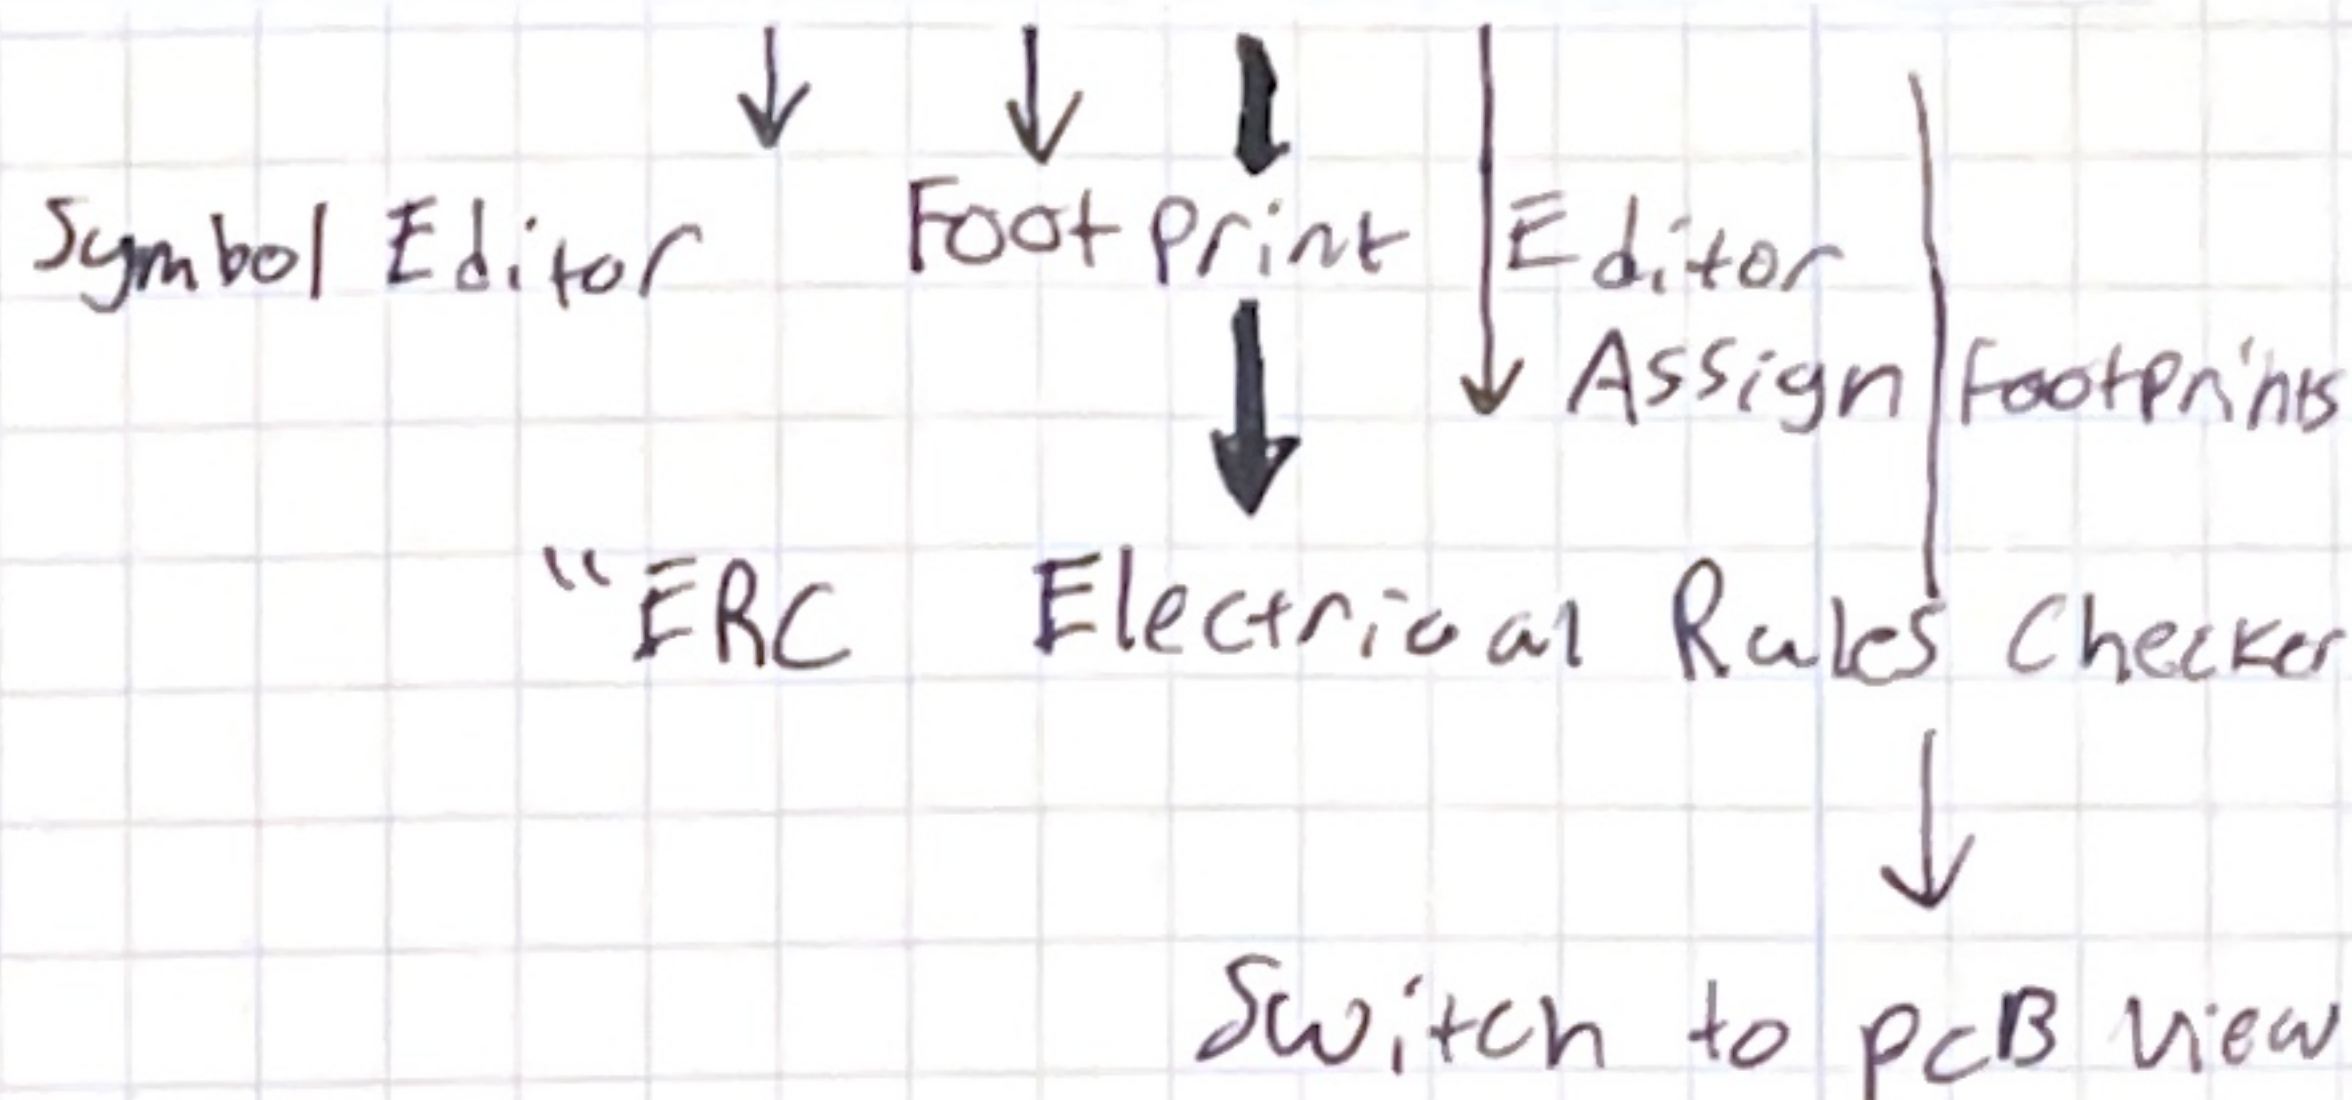 Symbol Editor Foot Print Editor
Assign Footprints
"ERC Electrical Rules Checker
Switch to PCB view